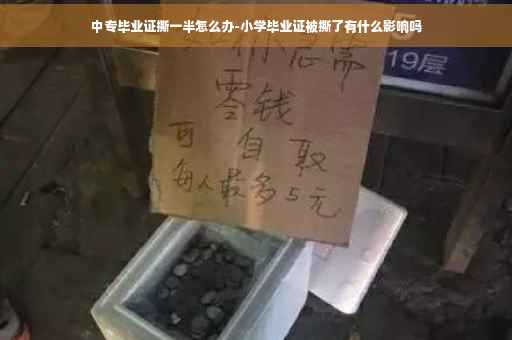 中专毕业证撕一半怎么办-小学毕业证被撕了有什么影响吗
你急需
零钱
可自取
每人最多5元
5
19层